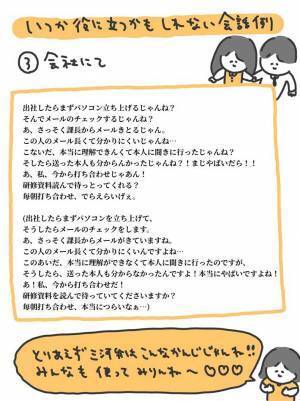 いつか役に立つかもしれない会話例
③会社にて
出社したらまずパソコン立ち上げるじゃんね？
そんでメールのチェックするじゃんね？
あ、さっそく課長からメールきとるじゃん。
この人のメール長くて分かりにくいじゃんね…
こないだ、本当に理解できんくて本人に聞きに行ったじゃんね？
そしたら送った本人も分からんかったじゃんね？！まじやばいだら！！
あ、私、今から打ち合わせじゃあん！
研修資料読んで待っとってくれる？
毎朝打ち合わせ、でらえらいげぇ。
(出社したらまずパソコンを立ち上げて、
そうしたらメールのチェックをします。
あ、さっそく課長からメールがきていますね。
この人のメール長くて分かりにくいんですよね…
このあいだ、本当に理解ができなくて本人に聞きに行ったのですが、
そうしたら、送った本人も分からなかったんですよ！本当にやばいですよね！
あ！私、今から打ち合わせだ！
研修資料を読んで待っていてくださいますか？
毎朝打ち合わせ、本当につらいなぁ…)
とりあえず三河弁はこんなかんじじゃんね!!
みんなも使ってみりんね〜♡♡♡